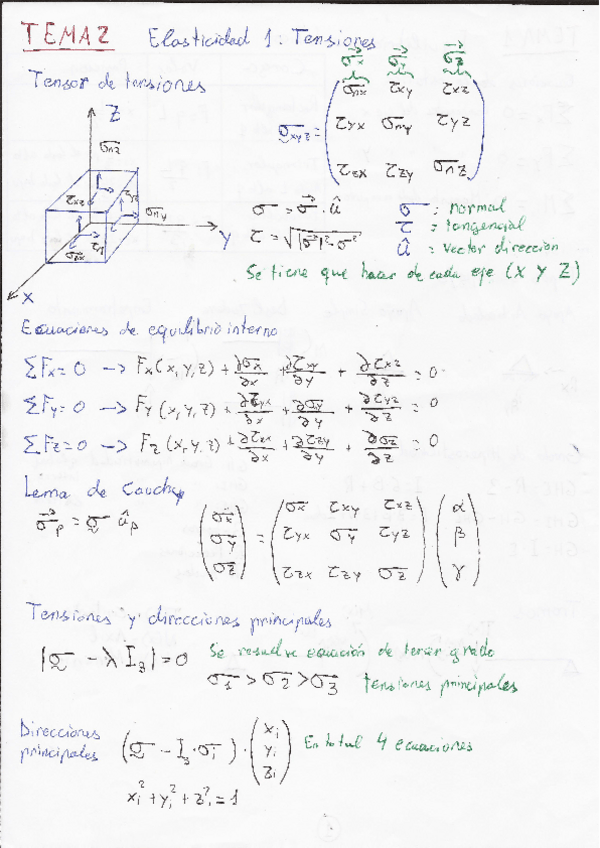 TEMA 2 Elasticidad 1: Tensiones
σ⃗x σ⃗y σ⃗z
Tensor de tensiones
σxyz = (σnx τxy τxz
τyx σny τyz
τzx τzy σnz)
Z
σnz
τxz
τyz
σny
σzx
Y
X
σ = σ⃗ · û
τ = √|σ⃗|² - σ²
σ : normal
τ : tangencial
û : vector direccion
Se tiene que hacer de cada eje (X Y Z)
Ecuaciones de equilibrio interno
ΣFx = 0 → Fx(x,y,z) + ∂σx/∂x + ∂τxy/∂y + ∂τxz/∂z = 0
ΣFy = 0 → Fy(x,y,z) + ∂τyx/∂x + ∂σy/∂y + ∂τyz/∂z = 0
ΣFz = 0 → Fz(x,y,z) + ∂τzx/∂x + ∂τzy/∂y + ∂σz/∂z = 0
Lema de Cauchy
σ⃗p = σ ûp
(σx σy σz) = (σx τxy τxz
τyx σy τyz
τzx τzy σz) · (α β γ)
Tensiones y direcciones principales
|σ - λ I3| = 0 Se resuelve ecuación de tercer grado
σ1 > σ2 > σ3 tensiones principales
Direcciones
principales (σ - I3·σi) · (xi yi zi) En total 4 ecuaciones
xi² + yi² + zi² = 1